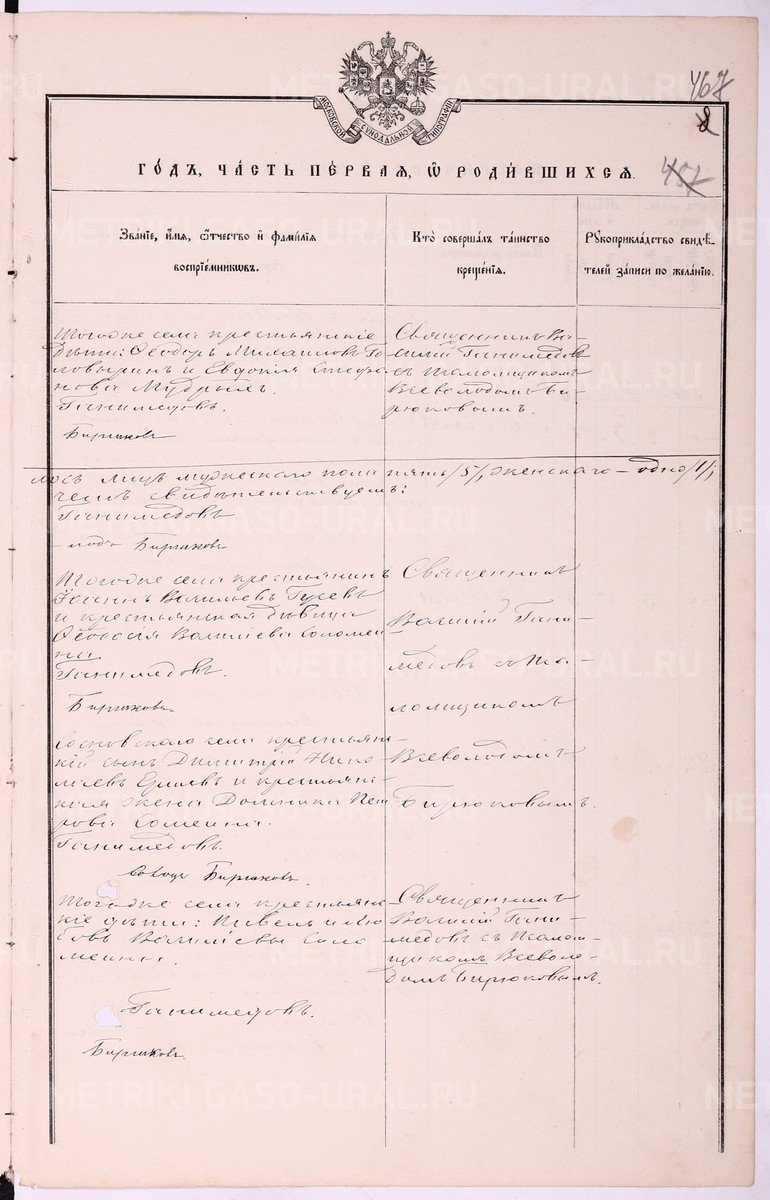 467
8
457
МОСКОВСКОЙ СѴНОДАЛЬНОЙ ТИПОГРАФІИ
ГО́ДЪ, ЧА́СТЬ ПЕ́РВАЯ, Ѡ҆ РОДИ́ВШИХСЯ.
Зва́ніе, и҆́мя, ѻ҆́тчество и҆ фами́лія
воспріе́мниковъ.
Кто̀ соверша́лъ та́инство
креще́нія.
Рꙋкоприкла́дство свидѣ́-
телей за́писи по жела́нію.
Тогоже села крестьянскіе
дѣти: Ѳеодоръ Михаиловъ Го
ловыринъ и Евдокія Стефа
нова Мудрыхъ.
Ганимедовъ.
Бирюковъ
Священникъ Ва-
силій Ганимедовъ
съ Псаломщикомъ
Всеволодомъ Би-
рюковымъ.
лицъ мужескаго пола пять /5/, женскаго – одно /1/,
чемъ свидѣтельствуемъ:
Ганимедовъ
Бирюковъ
Тогоже села крестьянинъ
Васильевъ Гусевъ
и крестьянская дѣвица
Ѳеодосія Васильева Соломеи-
на
Ганимедовъ.
Бирюковъ
Священникъ
Василій Гани-
медовъ съ Пса-
ломщикомъ
Всеволодомъ
Бирюковымъ.
Сосновскаго села крестьянс-
кій сынъ Димитрій Нико
лаевъ и крестьянс-
кая жена Домника Пет
рова Соломеина.
Ганимедовъ.
Бирюковъ
Тогоже села крестьянс-
кіе дѣти: Павелъ и Лю
бовь Васильевы Соло
меины.
Ганимедовъ.
Бирюковъ
Священникъ
Василій Гани-
медовъ съ Псалом-
щикомъ Всеволо-
домъ Бирюковымъ.
METRIKI.GASO-URAL.RU